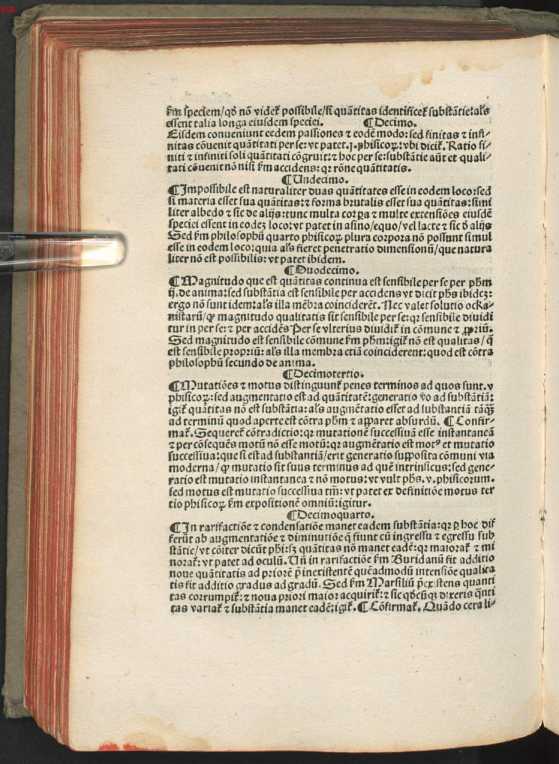 fm speciem/qđ nō videt possibile/si quātitas identificet substātie:als
essent talia longa eiusdem speciei. ¶ Decimo.
Eisdem conueniunt eedem passiones ⁊ eodē modo: sed finitas ⁊ infi-
nitas cōuenit quātitati per se: vt patet .j. phisicoꝝ: vbi dicit. Ratio fi-
niti ⁊ infiniti soli quātitati cōgruit: ⁊ hoc per se: substātie aūt et quali-
tati cōuenit nō nisi fm accidens: qꝛ rōne quātitatis.
¶ Undecimo.
¶ Impossibile est naturaliter duas quātitates esse in eodem loco: sed
si materia esset sua quātitas: ⁊ forma brutalis esset sua quātitas: simi
liter albedo ⁊ sic de alijs: tunc multa corpa ⁊ multe extensiōes eiusdē
speciei essent in eodē loco: vt patet in asino/equo/vel lacte ⁊ sic đ alijs
Sed fm philosophū quarto phisicoꝝ plura corpora nō possunt simul
esse in eodem loco: quia als fieret penetratio dimensionū/que natura
liter nō est possibilis: vt patet ibidem.
¶ Duodecimo.
¶ Magnitudo que est quātitas continua est sensibile per se per phm
ij. de anima: sed substātia est sensibile per accidens vt dicit phs ibidē:
ergo nō sunt idem: als illa mēbra coinciderēt. Nec valet solutio ocka-
nistarū/ꝙ magnitudo qualitatis sit sensibile per se: qꝛ sensibile diuidi
tur in per se: ⁊ per accidēs Per se vlterius diuidit in cōmune ⁊ ꝓpriū.
Sed magnitudo est sensibile cōmune fm phm: igit nō est qualitas/q̄
est sensibile propriū: als illa membra etiā coinciderent: quod est cōtra
philosophū secundo de anima.
¶ Decimotertio.
¶ Mutatiōes ⁊ motus distinguunt penes terminos ad quos sunt. v
phisicoꝝ: sed augmentatio est ad quātitatē: generatio ṽo ad substātiā:
igit quātitas nō est substātia: als augmētatio esset ad substantiā tāꝙ̄
ad terminū quod aperte est cōtra phm ⁊ apparet absurdū. ¶ Confir-
mat. Sequeret cōtradictio: qꝛ mutationē successiuā esse instantaneā
⁊ per cōsequēs motū nō esse motū: qꝛ augmētatio est mot⁹ et mutatio
successiua: que si est ad substantiā/erit generatio supposita cōmuni via
moderna/ꝙ mutatio sit suus terminus ad quē intrinsicus: sed gene-
ratio est mutatio instantanea ⁊ nō motus: vt vult phs. v. phisicorum.
sed motus est mutatio successiua tm̄: vt patet ex definitiōe motus ter
tio phisicoꝝ fm expositionē omniū: igitur.
¶ Decimoquarto.
¶ In rarifactiōe ⁊ condensatiōe manet eadem substātia: qꝛ ꝑ hoc dif
ferūt ab augmentatiōe ⁊ diminutiōe q̄ fiunt cū ingressu ⁊ egressu sub
stātie/vt cōiter dicūt phi: sꝫ quātitas nō manet eadē: qꝛ maiorat ⁊ mi
norat: vt patet ad oculū. Uñ in rarifactiōe fm Buridanū fit additio
noue quātitatis ad priorē p̄inexistentē quēadmodū intensiōe qualita
tis fit additio gradus ad gradū. Sed fm Marsiliū p̄existens quanti
tas corrumpit: ⁊ noua priori maior acquirit: ⁊ sic qđcūqꝫ dixeris q̄nti
tas variat ⁊ substātia manet eadē: igit. ¶ Cōfirmat. Quādo cera li-